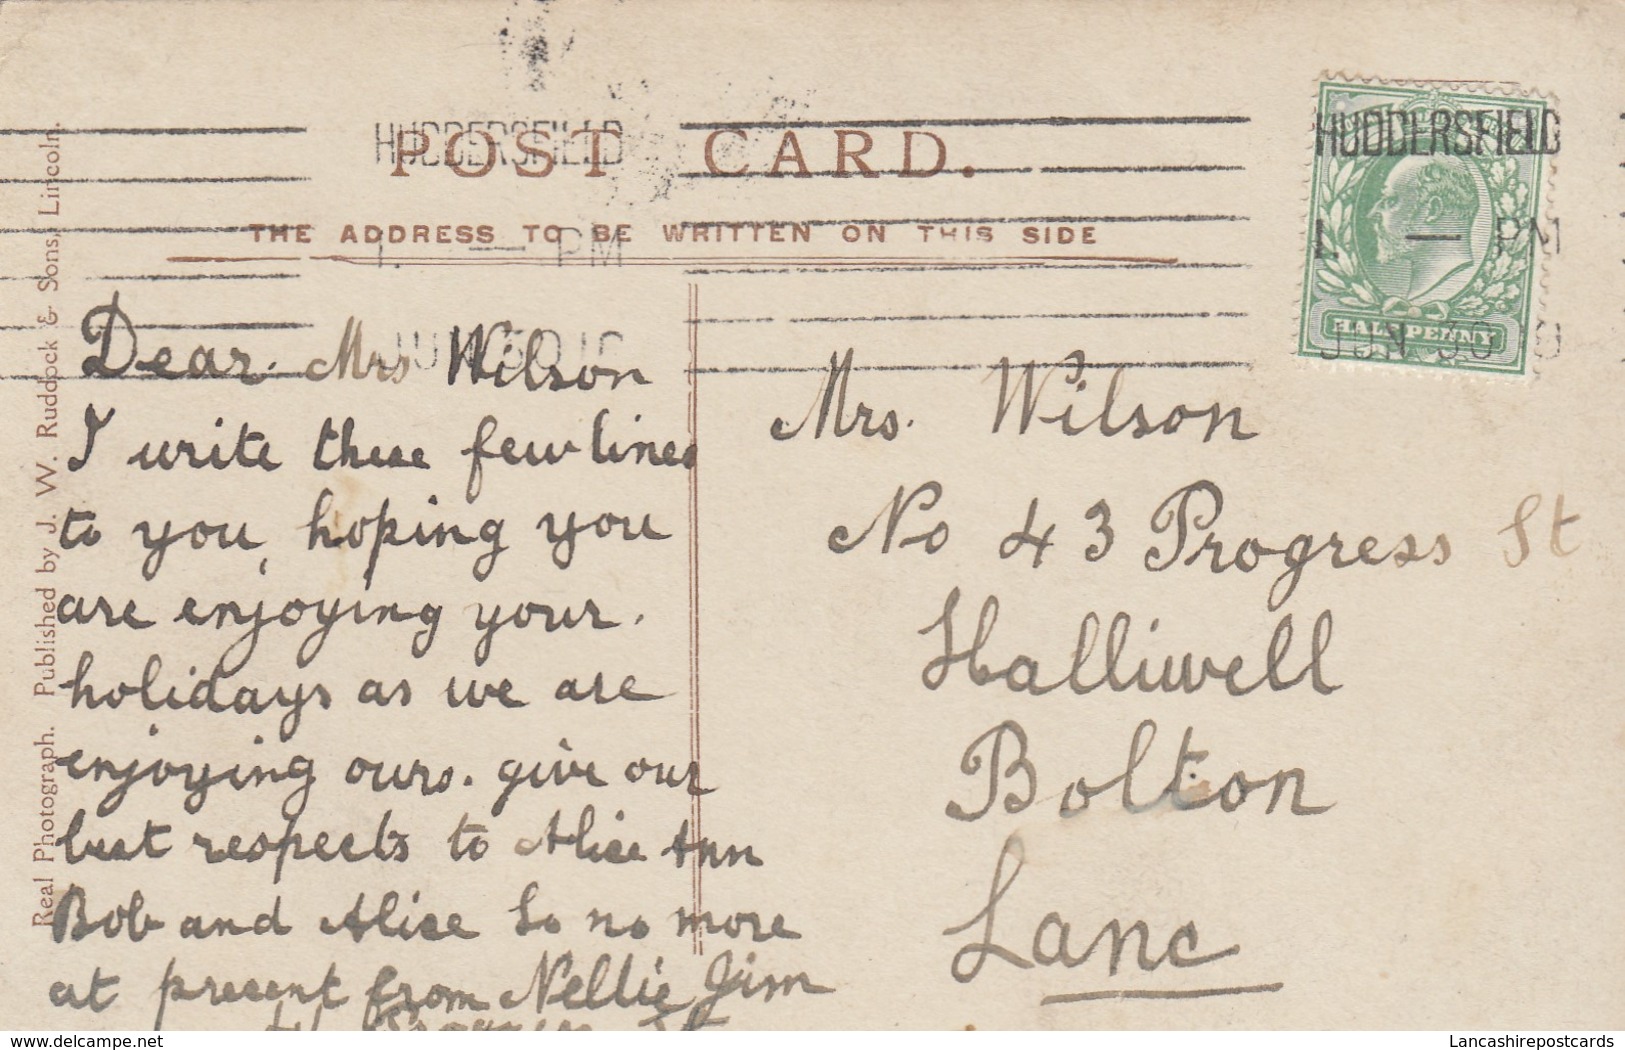 HUDDERSFIELD
POST CARD.
HUDDERSFIELD
THE ADDRESS TO BE WRITTEN ON THIS SIDE
1. — PM
1. — PM
HALFPENNY
JUN 30
Real Photograph. Published by J. W. Ruddock & Sons, Lincoln.
Dear. Mrs Wilson
I write these few lines
to you, hoping you
are enjoying your.
holidays as we are
enjoying ours. give our
best respects to Alice Ann
Bob and Alice So no more
at present from Nellie Jim
Mrs. Wilson
No 43 Progress St
Halliwell
Bolton
Lanc
delcampe.net
Lancashirepostcards